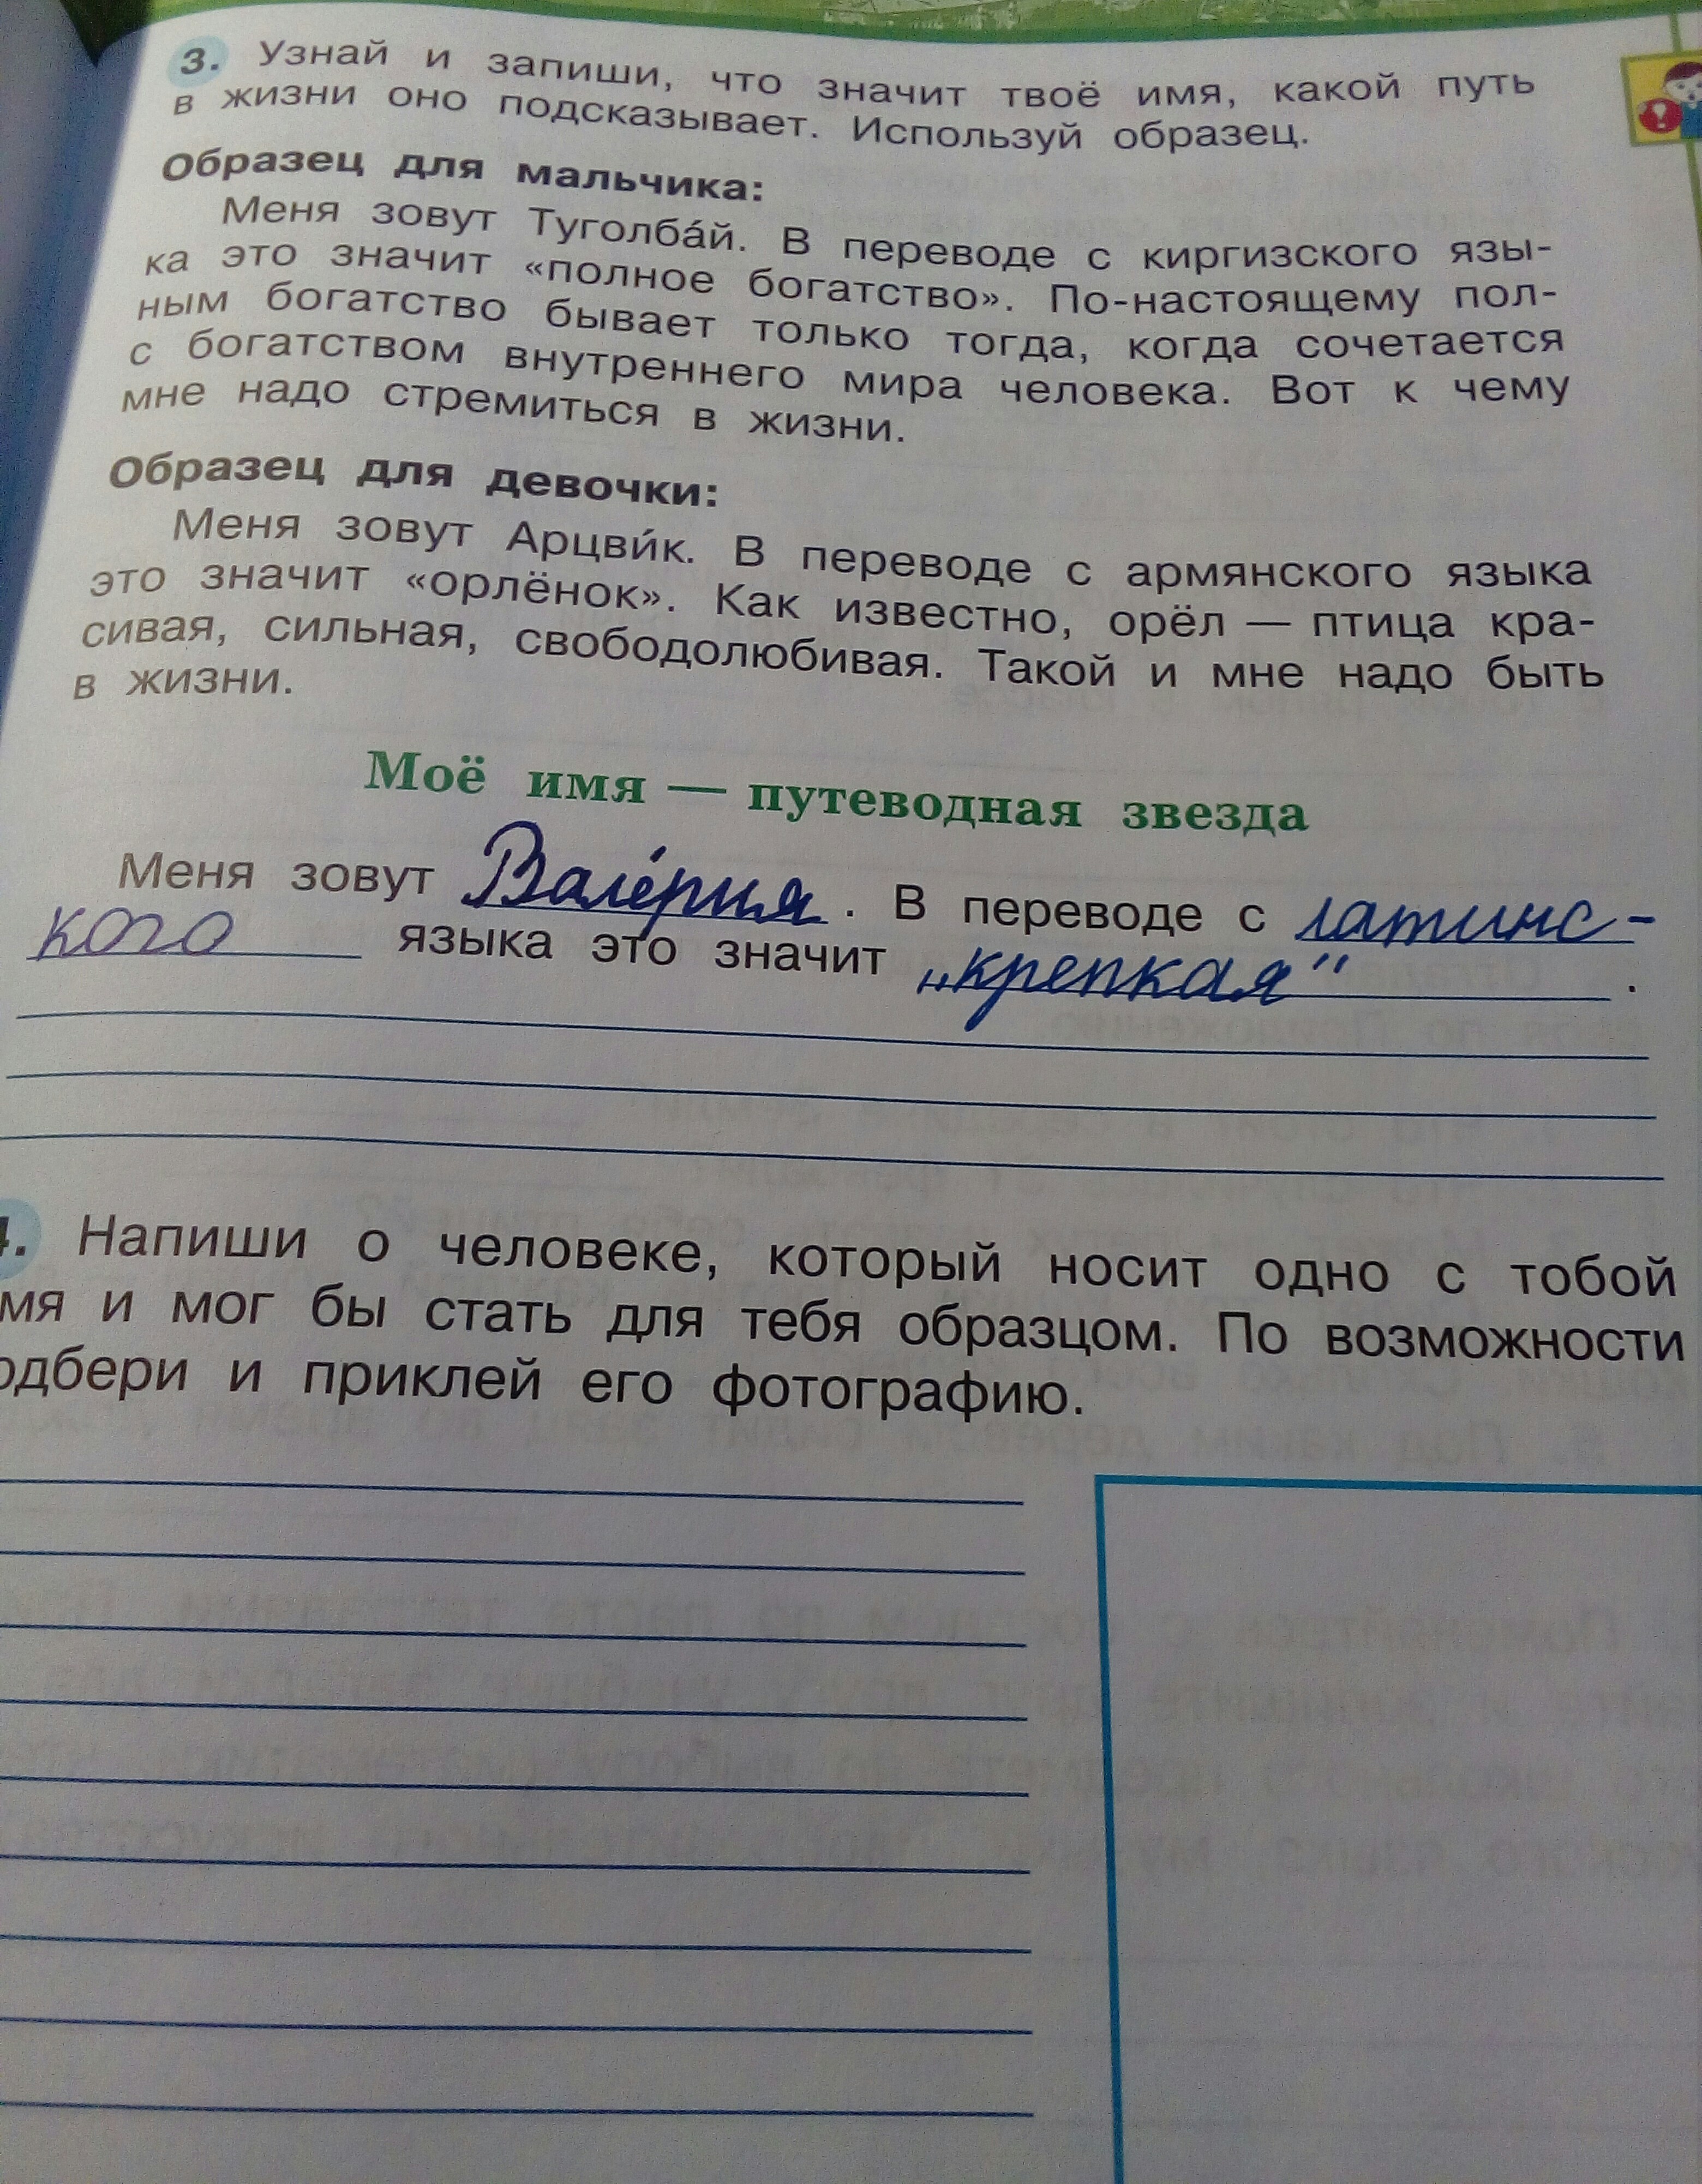 3. Узнай и запиши, что значит твоё имя, какой путь
в жизни оно подсказывает. Используй образец.
Образец для мальчика:
Меня зовут Туголба́й. В переводе с киргизского язы-
ка это значит «полное богатство». По-настоящему пол-
ным богатство бывает только тогда, когда сочетается
с богатством внутреннего мира человека. Вот к чему
мне надо стремиться в жизни.
Образец для девочки:
Меня зовут Арцви́к. В переводе с армянского языка
это значит «орлёнок». Как известно, орёл — птица кра-
сивая, сильная, свободолюбивая. Такой и мне надо быть
в жизни.
Моё имя — путеводная звезда
Меня зовут Вале́рия. В переводе с латинс-
кого языка это значит „крепкая“.
4. Напиши о человеке, который носит одно с тобой
мя и мог бы стать для тебя образцом. По возможности
одбери и приклей его фотографию.